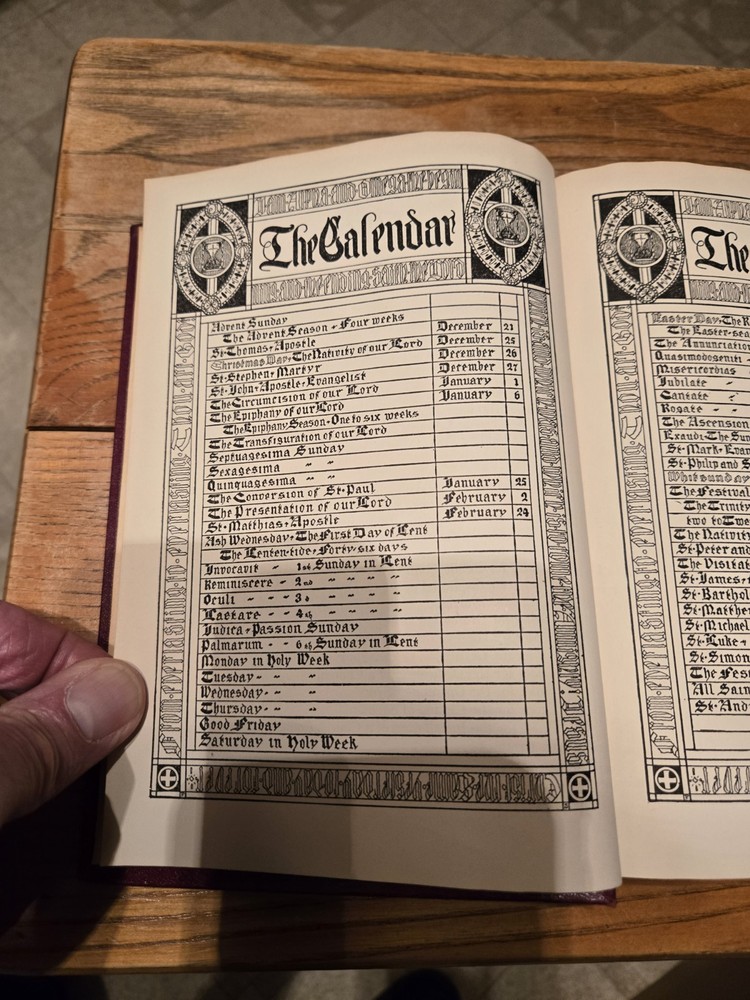 I am Alpha and Omega the begin
The Calendar
ning and the ending saith the Lord
Advent Sunday
The Advent Season · Four weeks
St · Thomas · Apostle December 21
Christmas Day · The Nativity of our Lord December 25
St · Stephen · Martyr December 26
St · John · Apostle · Evangelist December 27
The Circumcision of our Lord January 1
The Epiphany of our Lord January 6
The Epiphany Season · One to six weeks
The Transfiguration of our Lord
Septuagesima Sunday
Sexagesima " "
Quinquagesima " "
The Conversion of St · Paul January 25
The Presentation of our Lord February 2
St · Matthias · Apostle February 24
Ash Wednesday · The First Day of Lent
The Lenten-tide · Forty-six days
Invocavit - 1st Sunday in Lent
Reminiscere - 2nd " " "
Oculi - - - 3d " " "
Laetare - - 4th " " "
Judica · Passion Sunday
Palmarum - - 6th Sunday in Lent
Monday in Holy Week
Tuesday - " "
Wednesday - " "
Thursday - " "
Good Friday
Saturday in Holy Week
From everlasting to everlasting Thou art God
The
Easter Day · The R
The Easter-sea
The Annunciation
Quasimodogeniti
Misericordias
Jubilate "
Cantate "
Rogate - "
The Ascension
Exaudi · The Sun
St · Mark · Evan
St · Philip and S
Whitsunday
The Festival
The Trinity
two to Twe
The Nativity
St · Peter and
The Visitat
St · James ·
St · Barthol
St · Matthe
St · Michael
St · Luke ·
St · Simon
The Fes
All Sain
St · And
From everlasting to everlasting Thou art God